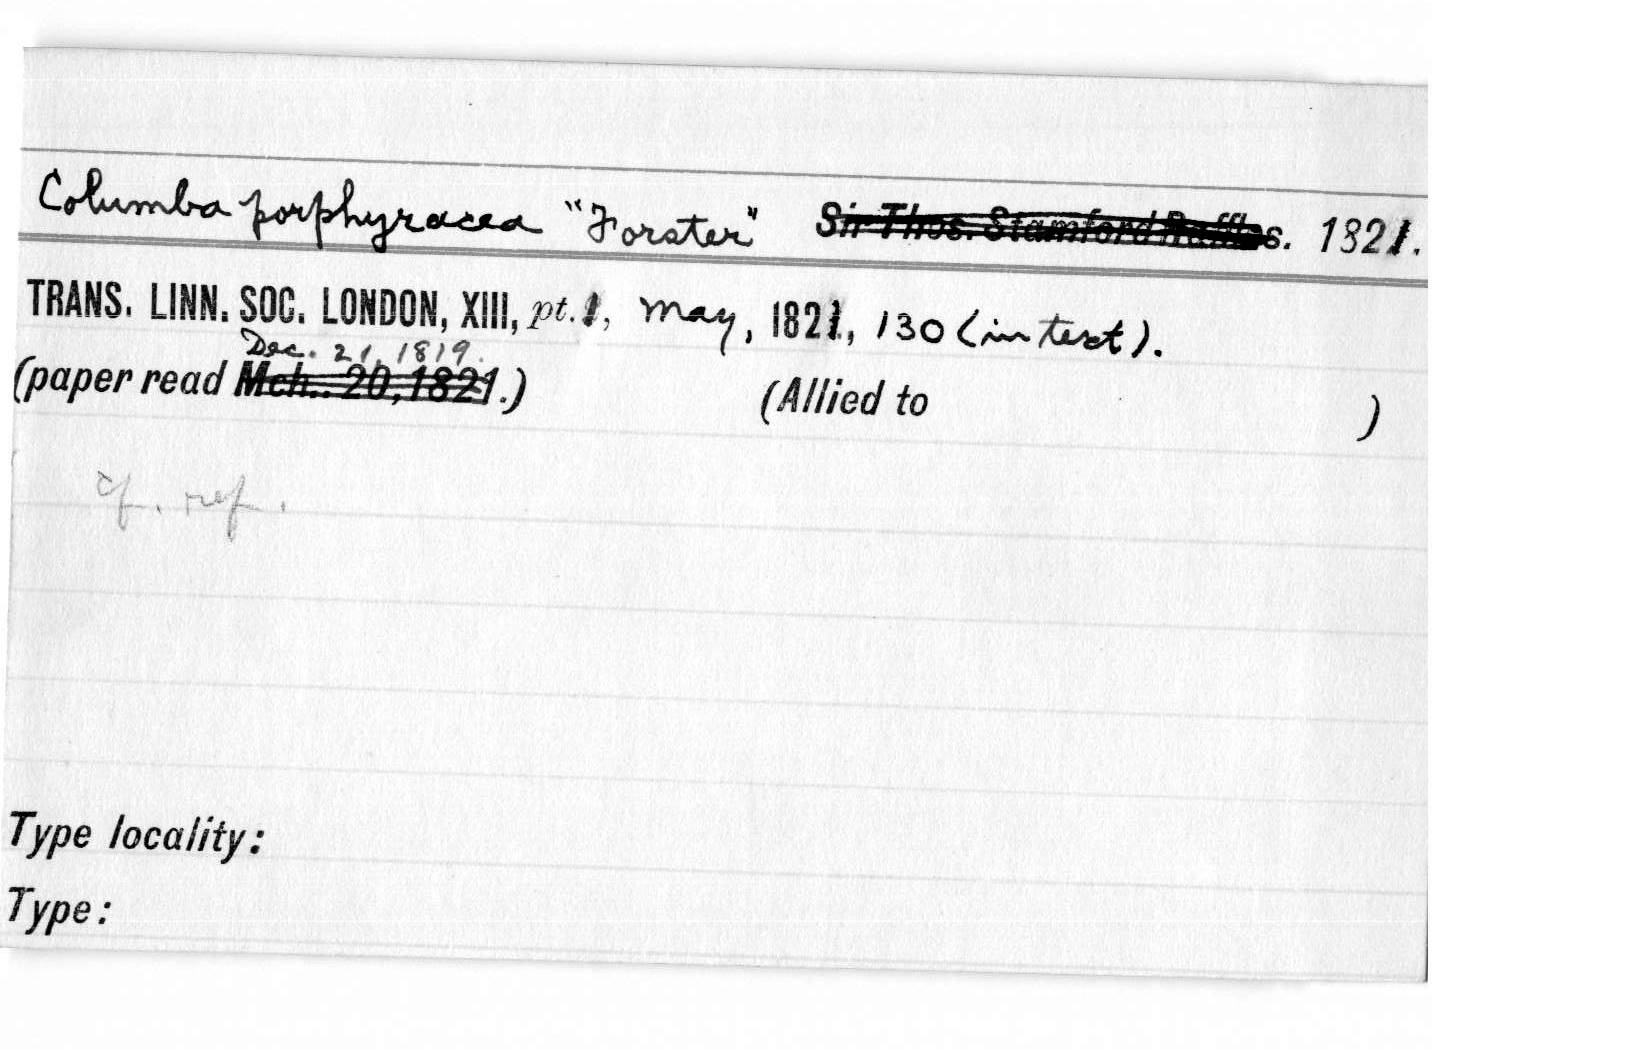 Columba porphyracea "Forster" Sir Thos. Stamford Raffles. 1821.
TRANS. LINN. SOC. LONDON, XIII, pt. 1, May, 1821, 130 (in text).
Dec. 21, 1819.
(paper read Mch.. 20, 1821.) (Allied to )
cf. ref.
Type locality:
Type: